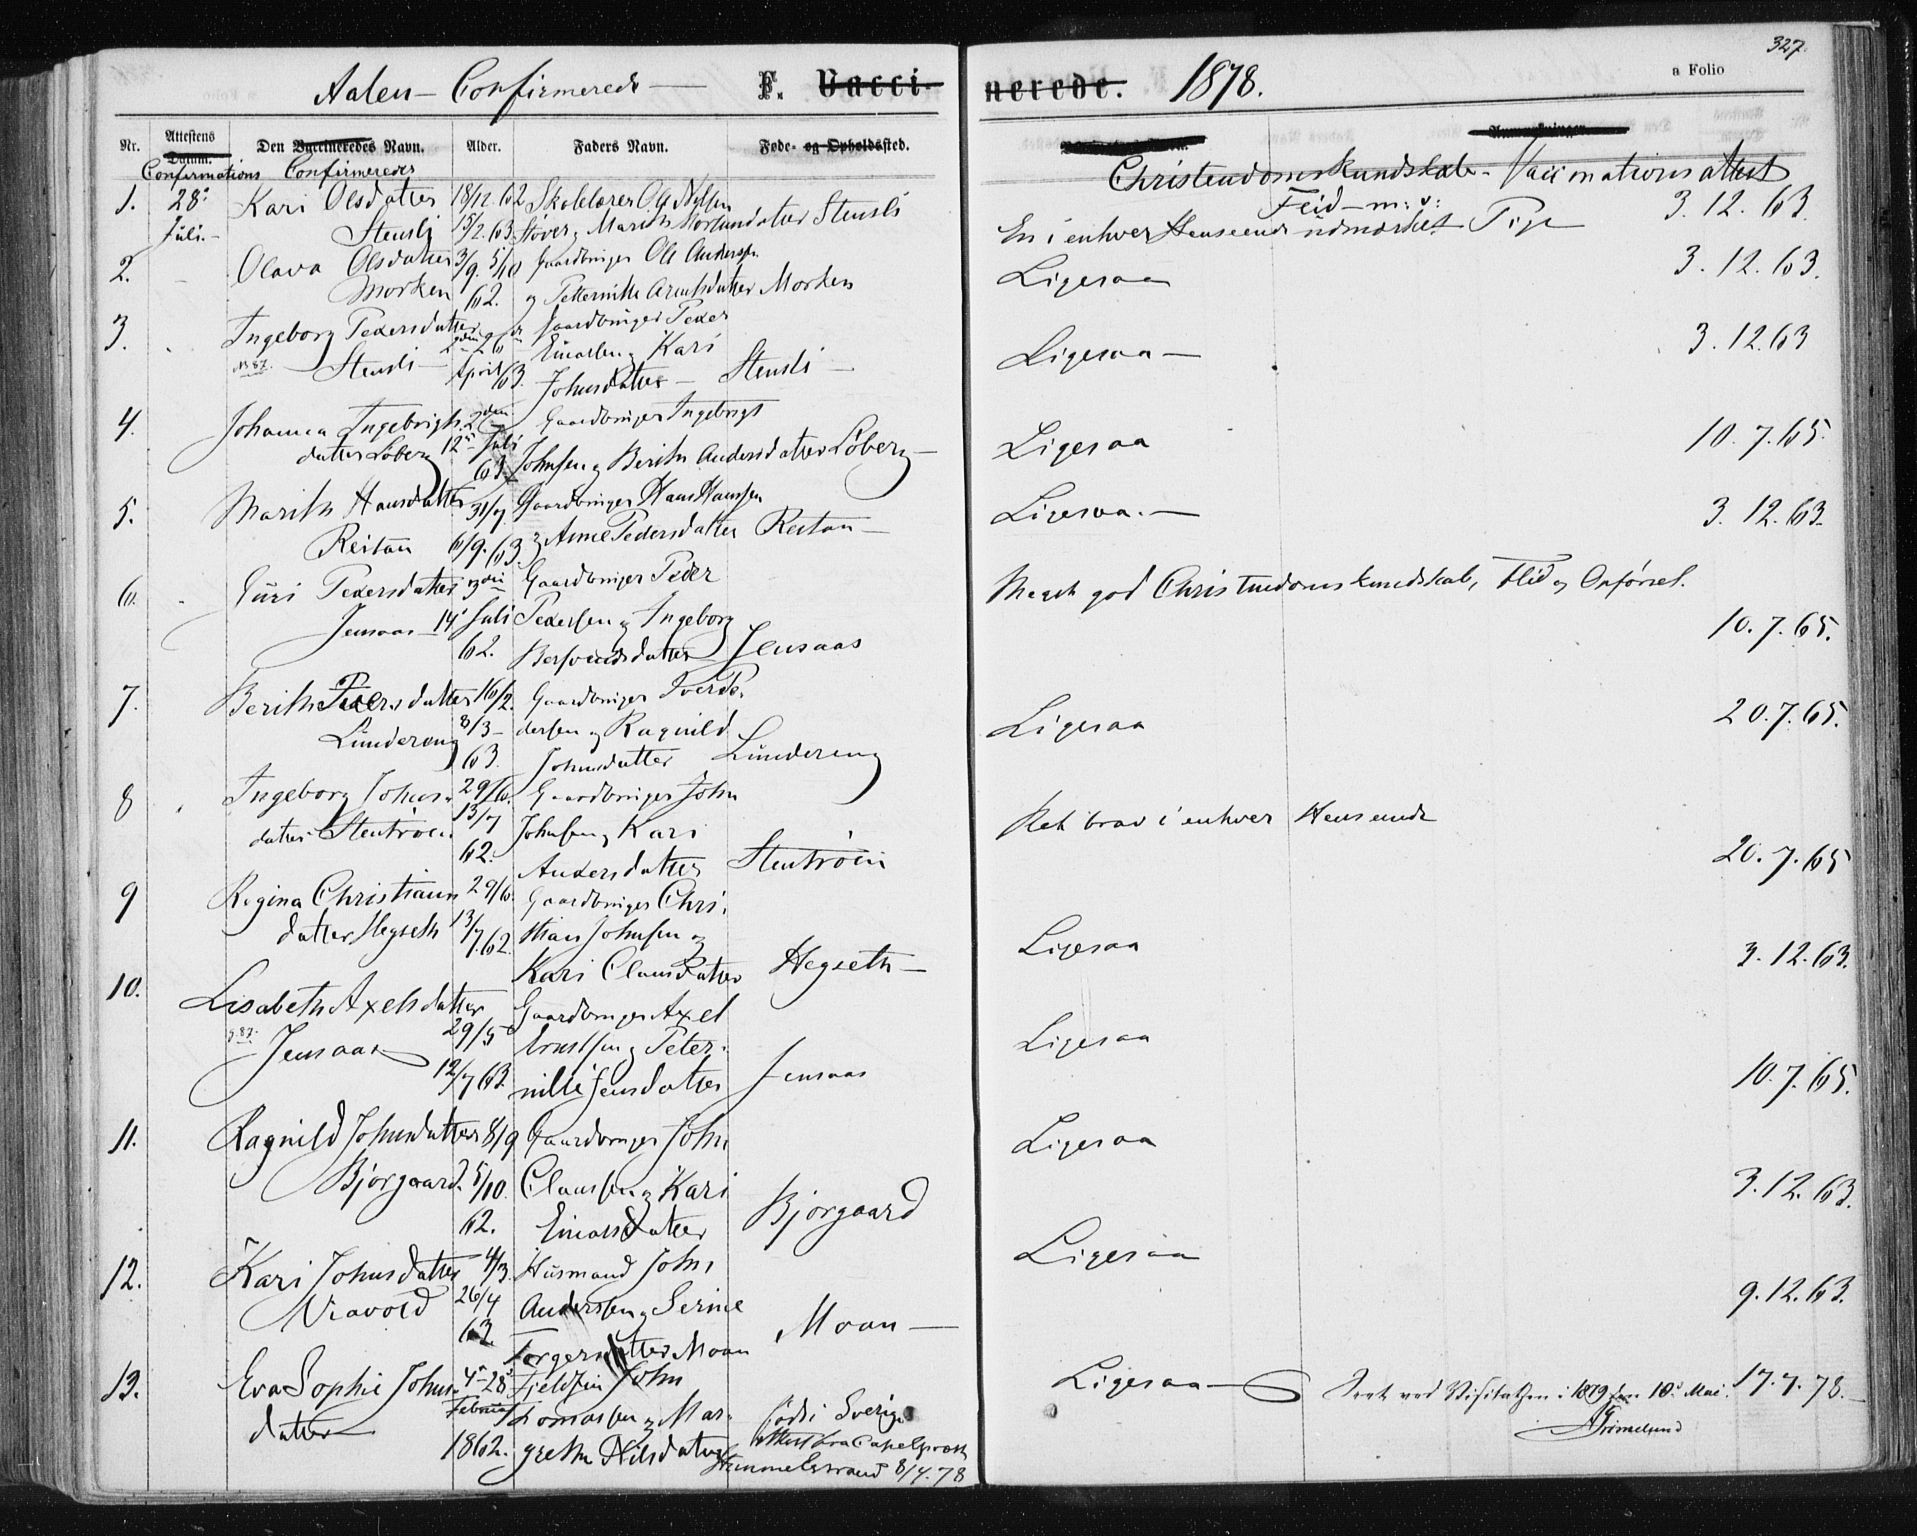 327.
Aalen - Confirmerede - F. Vaccinerede. 1878.
a Folio
Nr. Attestens Datum. Den Vaccineredes Navn. Alder. Faders Navn. Føde- og Opholdssted. Anmerkninger.
Confirmations Confirmeredes Christendomskundskab - Vaccinationsattest
Flid - m: v:
1. 28. Kari Olsdatter 18/12 62 Skolelærer Ole Nilsen 3. 12. 63.
Juli. - Stensli 15/2. 63. Støver og Marith Mortensdatter Stensli En i enhver Henseende udmærket Pige
2. Olava Olsdatter 3/9. 5/10 Gaardbruger Ole Andersen Ligesaa 3. 12. 63.
Morken 62. og Petternille Arentsdatter Morken
3. Ingeborg Pedersdatter Gaardbruger Peder Ligesaa - 3. 12. 63
Stensli - April 63. Einarsen og Kari
Johnsdatter - Stensli -
4. Johanna Ingebrigts 2den Gaardbruger Ingebrigt Ligesaa 10. 7. 65.
datter Løberg 12 Juli
63. Johnsen og Berith Andersdatter Løberg -
5. Marith Hansdatter 31/7 Gaardbruger Hans Hansen Ligesaa. - 3. 12. 63.
Reitan 6/9. 63. og Anne Pedersdatter Reitan -
6. Guri Pedersdatter Gaardbruger Peder Meget god Christendomskundskab, Flid og Opførsel.
Jensaas - 14 Juli Pedersen og Ingeborg 10. 7. 65.
62. Bersvendsdatter Jensaas
7. Berith Pedersdatter 16/2. Gaardbruger Peder Pe- Ligesaa 20. 7. 65.
Lündereng 8/3 - dersen og Ragnild
63. Johnsdatter Lündereng
8 Ingeborg Johns- 29/6. Gaardbruger John Ret brav i enhver Henseende
datter Stentrøen 13/7 Johnsen og Kari
62. Andersdatter Stentrøen 20. 7. 65
9 Regina Christians 29/6. Gaardbruger Chri-
datter Hegseth 13/7. 62. stian Johnsen og Ligesaa 3. 12. 63.
Kari Clausdatter Hegseth -
10. Lisabeth Axelsdatter Gaardbruger Axel Ligesaa
Jensaas 29/5 Ernstsen og Peter-
12/7 63. nille Jensdatter Jensaas 10. 7. 65.
11. Ragnild Johnsdatter 8/9 Gaardbruger John Ligesaa
Bjørgaard. 5/10. Claussen og Kari 3. 12. 63.
62. Einarsdatter Bjørgaard
12. Kari Johnsdatter 4/3. Husmand John Ligesaa
26/4 Andersen og Serine 9. 12. 63.
63. Torgersdatter Moan Moan -
13. Eva Sophie Johns- 4 - 28 Fjeldfin John Ligesaa - Seet ved Visitathen i 1879 den 10. Mai. 17. 7. 78. -
datter Februar Thomassen og Mar- født i Sverige Grimelund
1862. grethe Nilsdatter Attest fra Capelpræst
8/4. 78